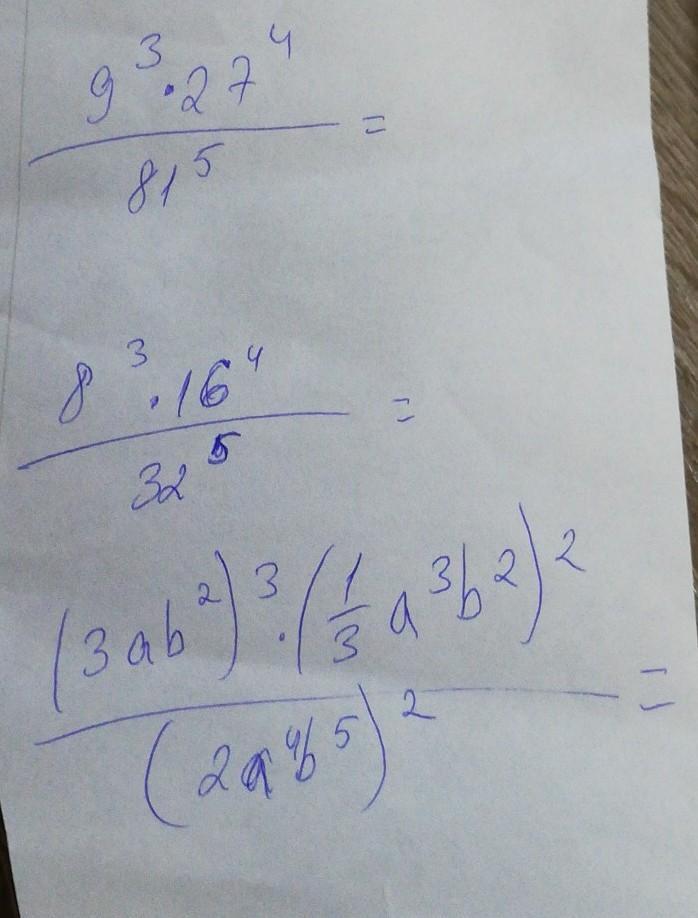 9³·27⁴
81⁵ =
8³·16⁴
32⁵ =
(3ab²)³·(1/3 a³b²)²
(2a⁴b⁵)² =